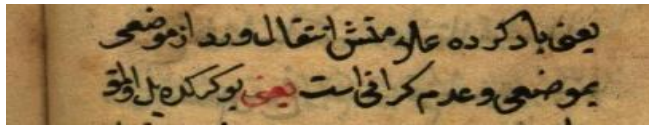 یعنی باد کرده علامتش انتقال درد از موضعی
بموضعی و عدم کرانی است یعنی بوکرکده یل اولمق